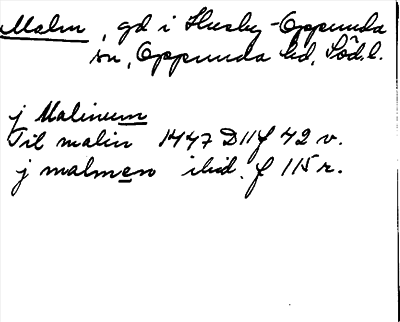 Malm, gd i Husby-Oppunda
sn, Oppunda hd, Södl.
j Malmum
Til malm 1447 D11 f 42 v.
j malmen ibid. f 115 r.